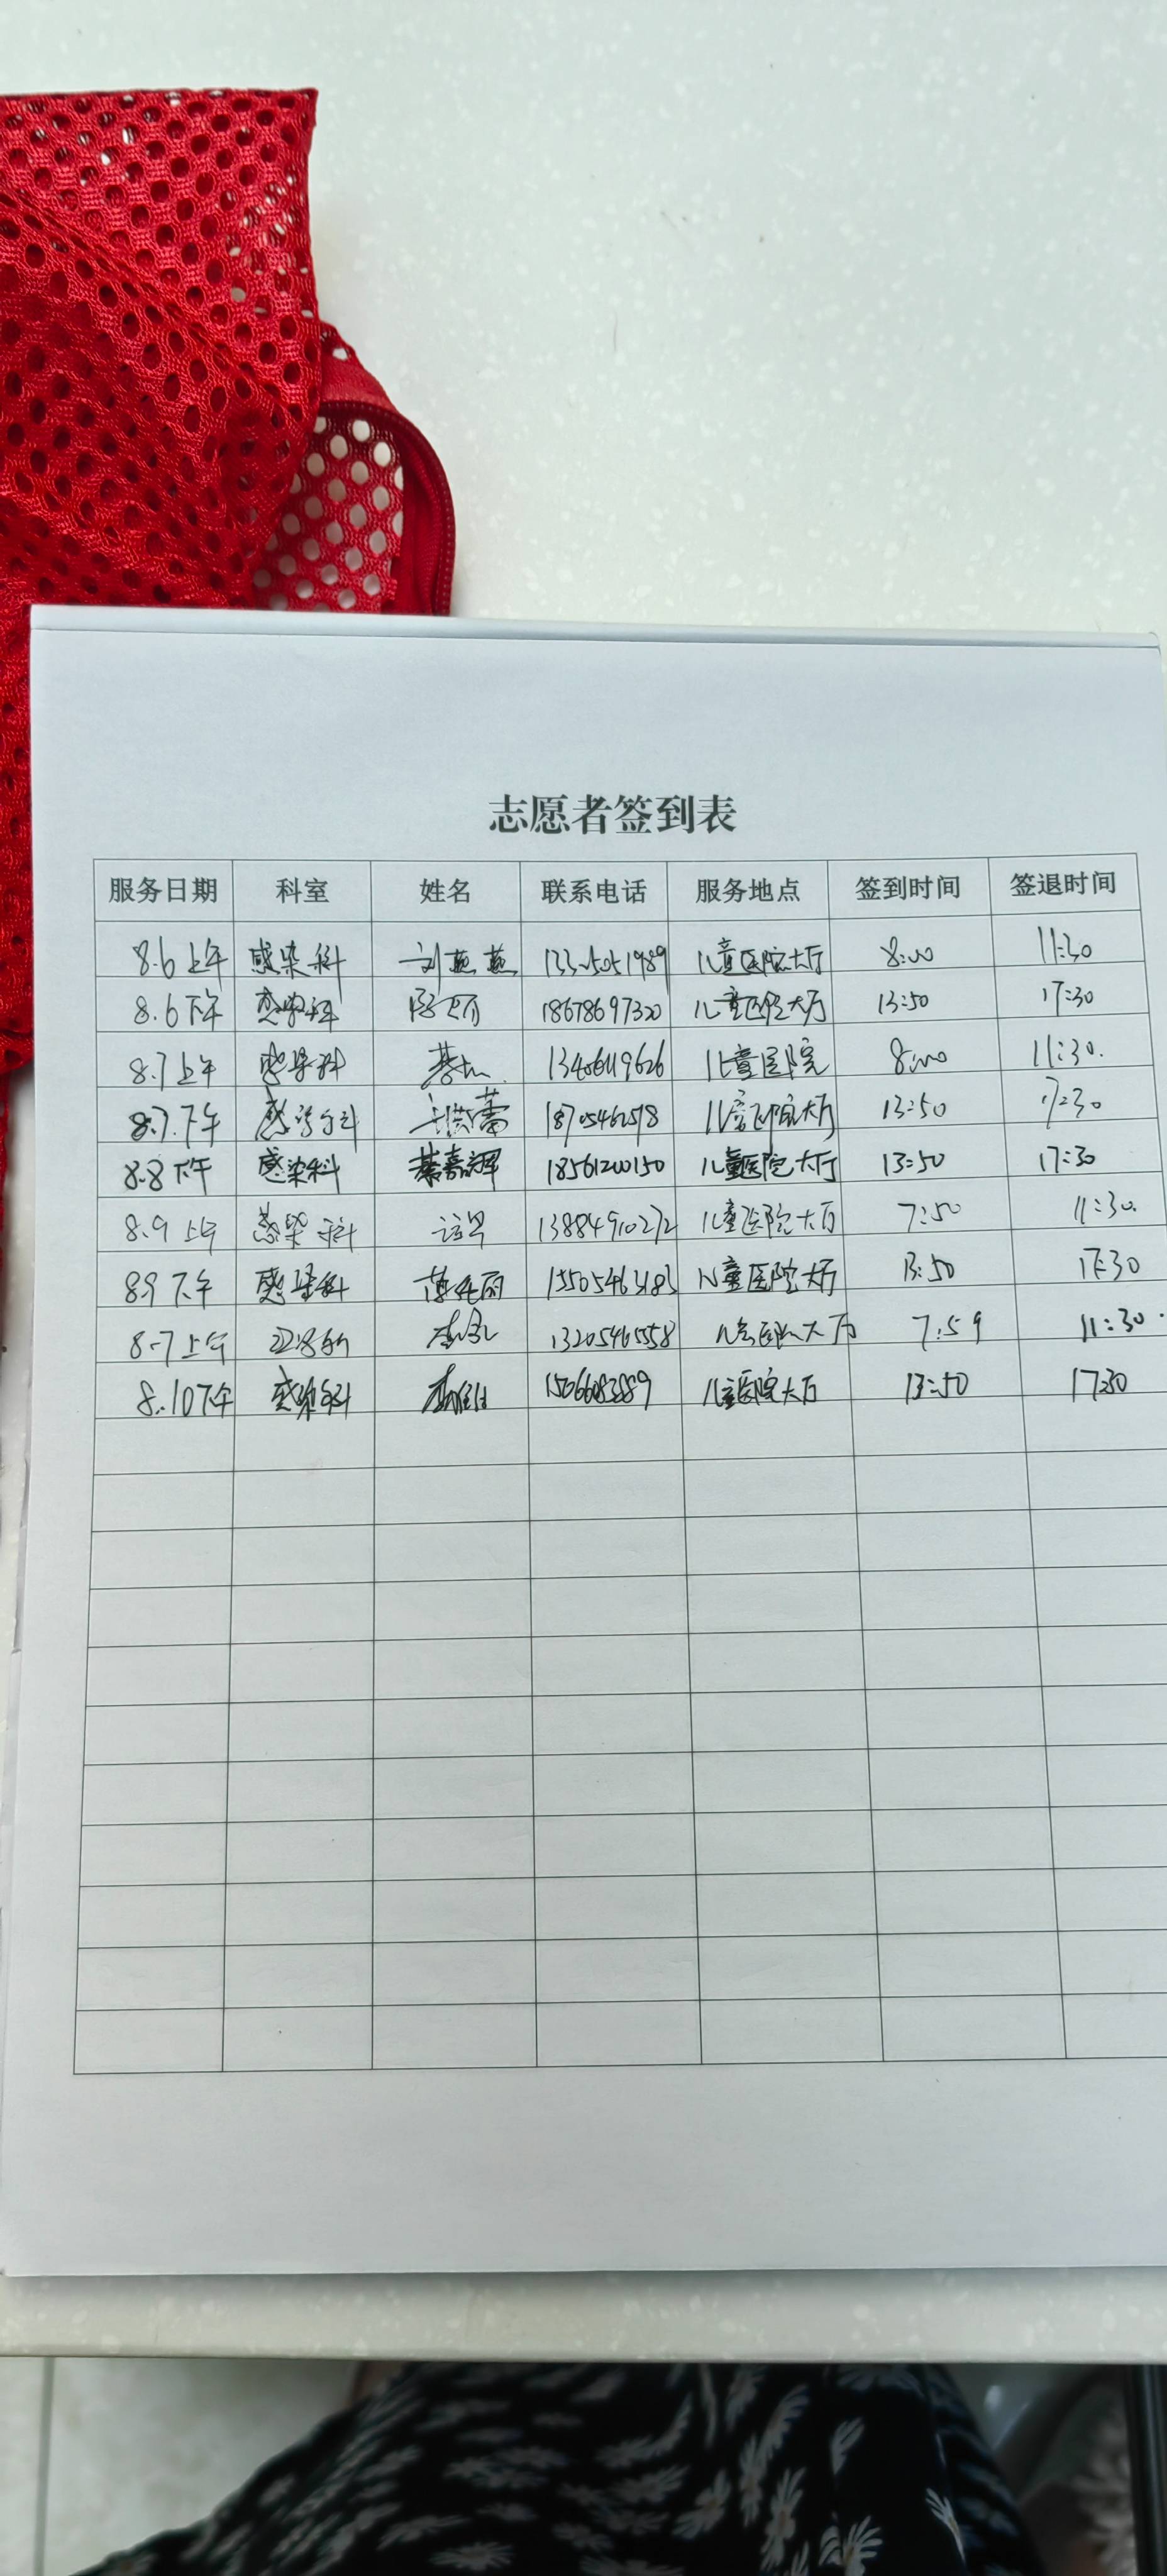 志愿者签到表
服务日期 科室 姓名 联系电话 服务地点 签到时间 签退时间
8.6上午 感染科 刘燕燕 儿童医院大厅 8:00 11:30
8.6下午 感染科 18678697320 儿童医院大厅 13:50 17:30
8.7上午 感染科 儿童医院 8:00 11:30.
8.7.下午 感染科 儿童医院大厅 13:50 17:30
8.8下午 感染科 18561200150 儿童医院大厅 13:50 17:30
8.9上午 感染科 13884910272 儿童医院大厅 7:50 11:30.
8.9下午 感染科 儿童医院大厅 13:50 17:30
8-7上午 儿童医院大厅 7:59 11:30.
8.10下午 感染科 15066083889 儿童医院大厅 13:50 17:30